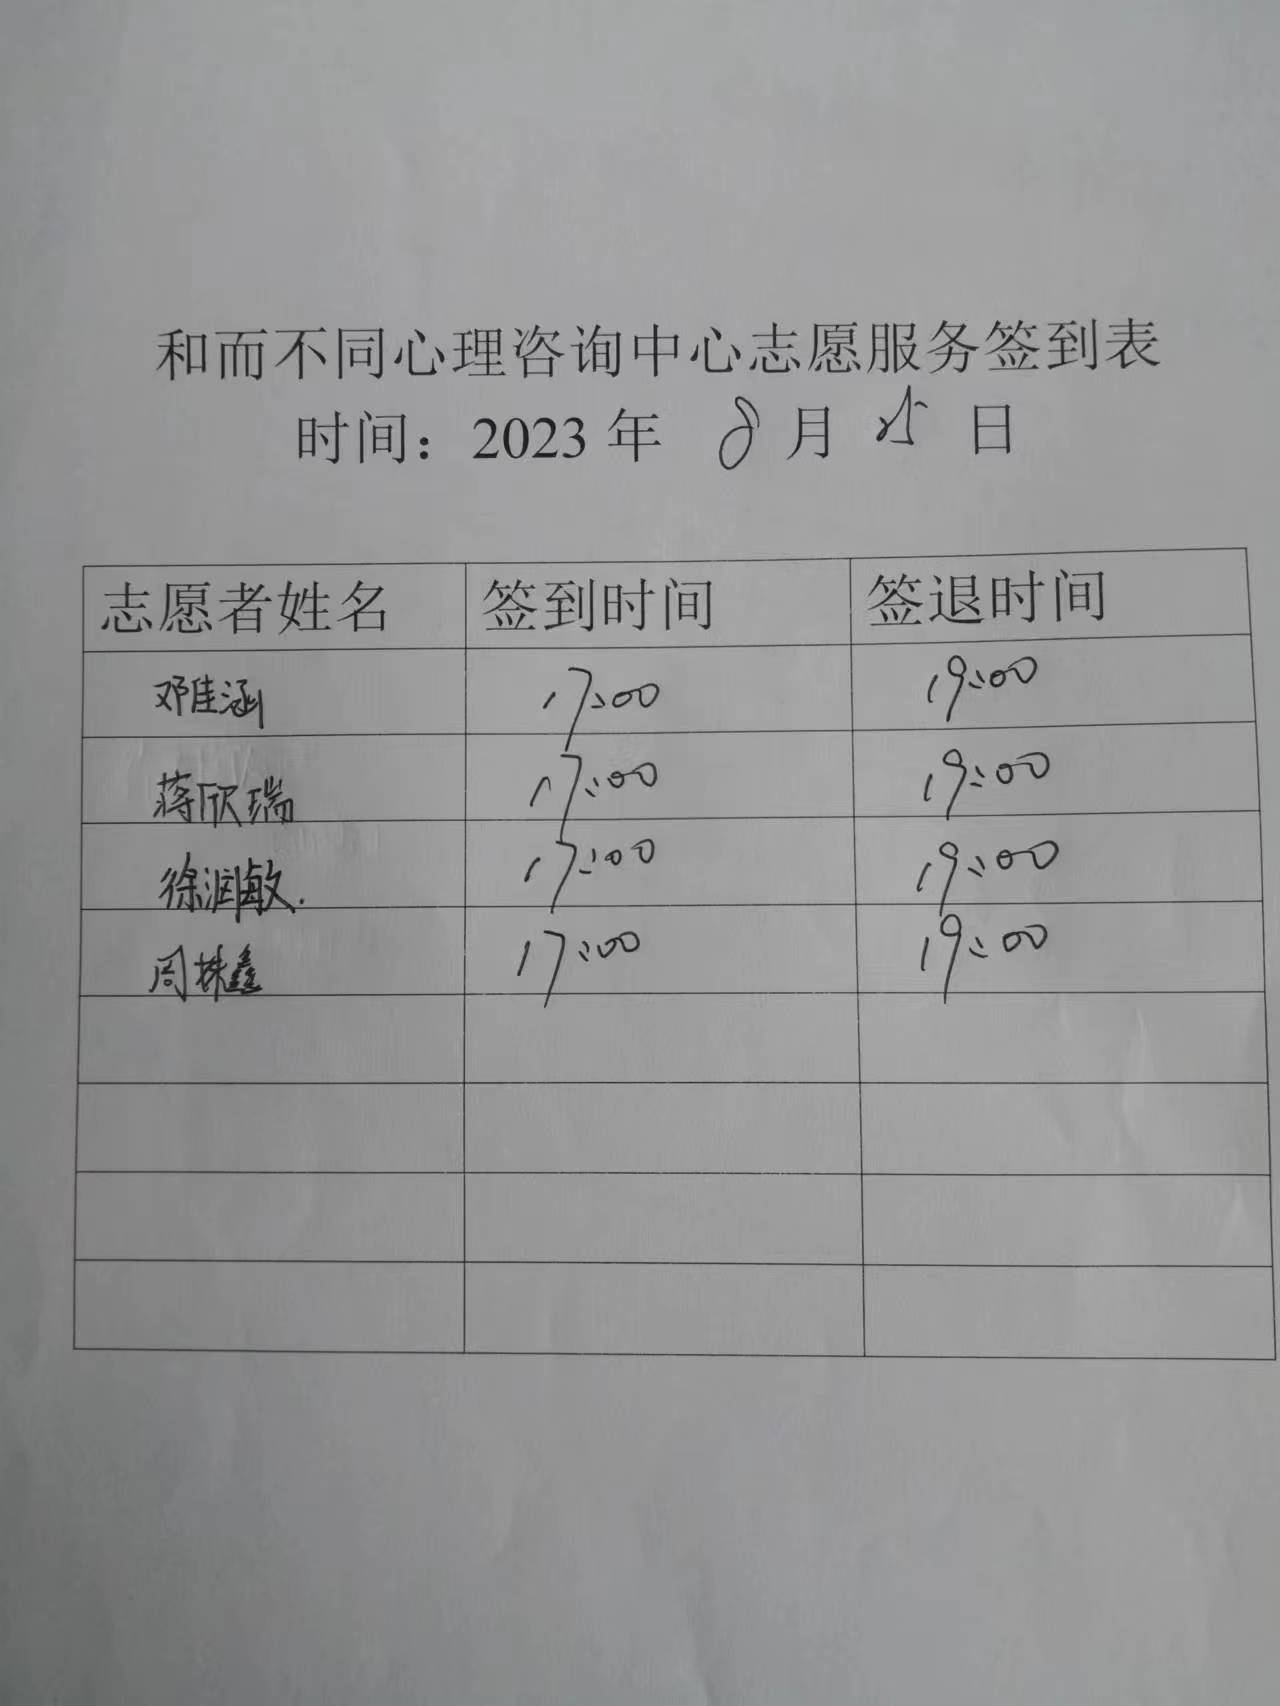 和而不同心理咨询中心志愿服务签到表
时间：2023 年 8 月 25 日
志愿者姓名 签到时间 签退时间
邓佳涵 17:00 19:00
蒋欣瑞 17:00 19:00
徐润敏. 17:00 19:00
周株鑫 17:00 19:00